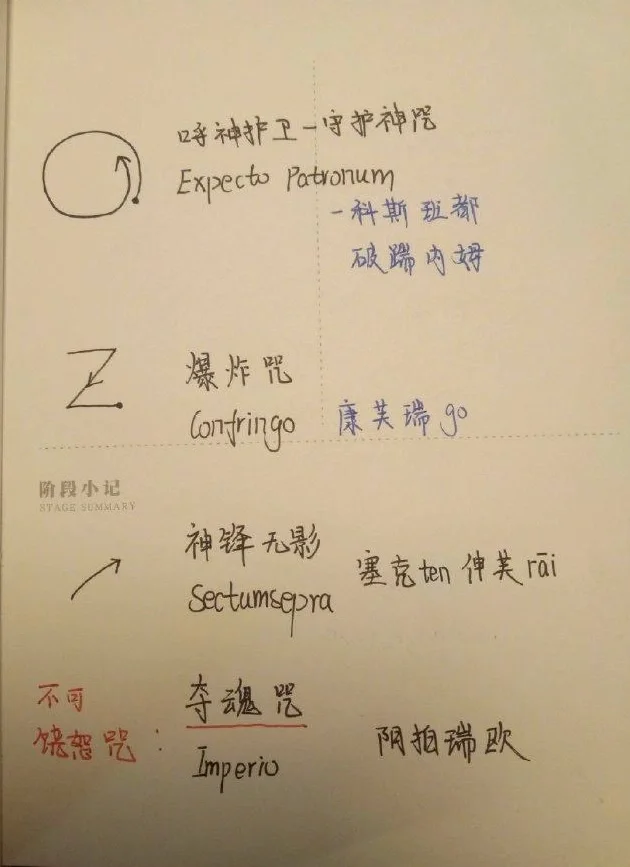 呼神护卫-守护神咒
Expecto Patronum
-科斯班都
破踹内姆
爆炸咒
Confringo 康芙瑞go
阶段小记
STAGE SUMMARY
神锋无影
Sectumsepra 塞克ten伸芙rāi
不可
饶恕咒: 夺魂咒
Imperio 阴拍瑞欧